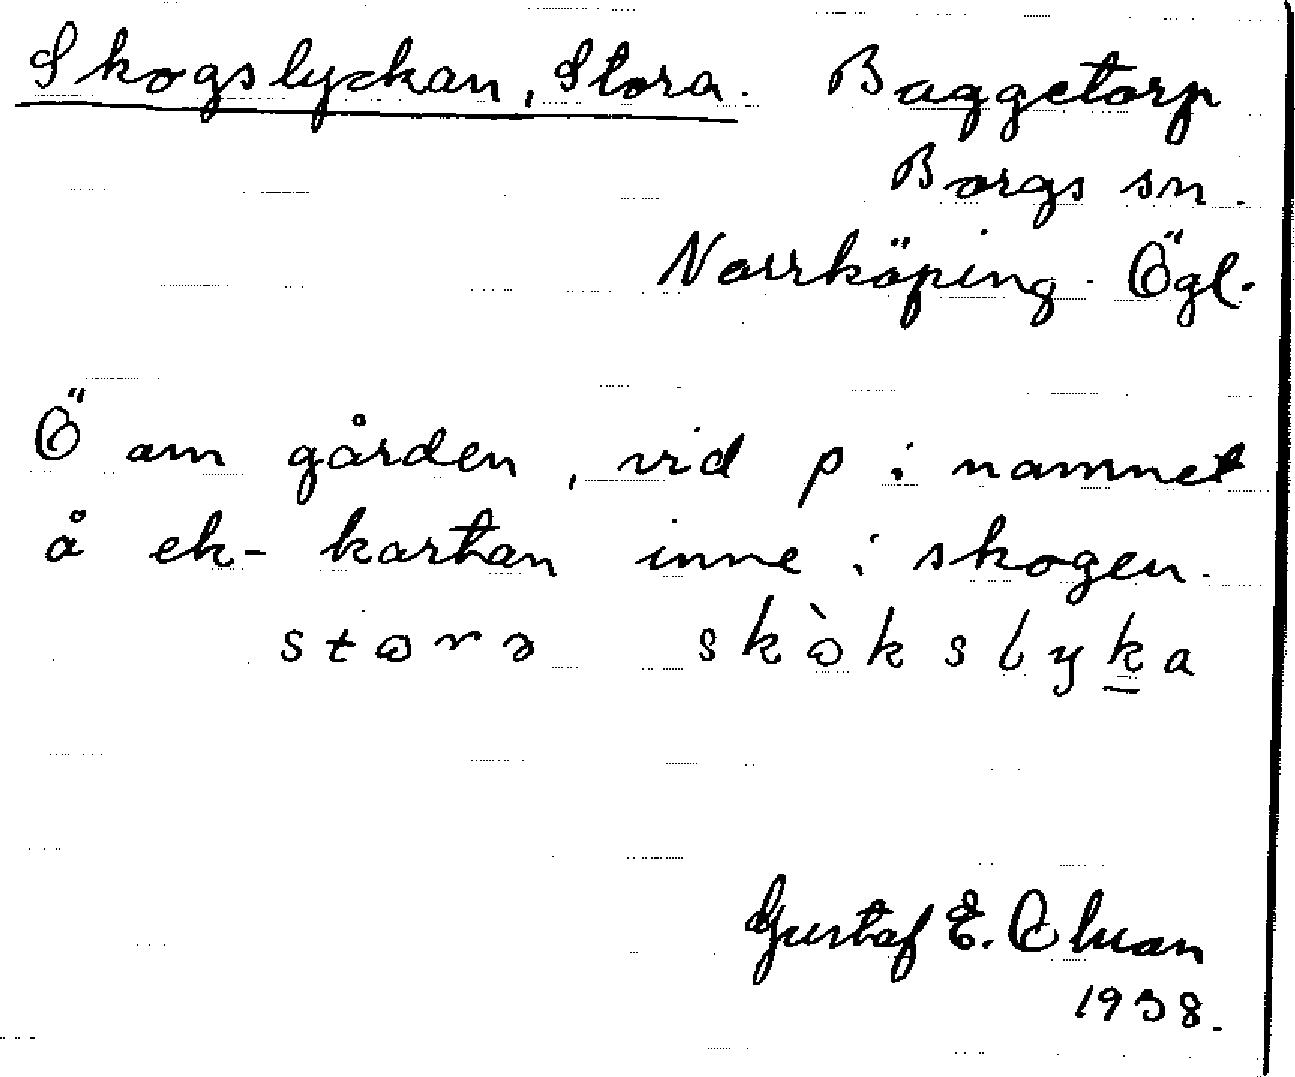 Skogslyckan, Stora. Baggetorp
Borgs sn.
Norrköping. Ögl.
Ö om gården, vid p i namnet
å ek-kartan inne i skogen.
storɘ skòkslyka
Gustaf E. Olman
1938.